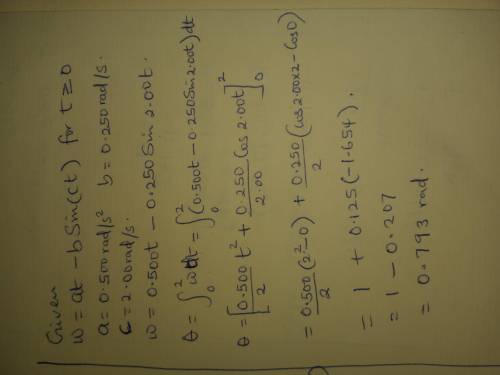 Given
w = at - b Sin(ct) for t ≥ 0
a = 0.500 rad/s² b = 0.250 rad/s.
c = 2.00 rad/s.
w = 0.500t - 0.250 Sin 2.00t.
θ = ∫₀² w dt = ∫₀² (0.500t - 0.250 Sin 2.00t) dt
θ = [0.500/2 t² + 0.250/2.00 Cos 2.00t]₀²
= 0.500/2 (2² - 0) + 0.250/2 (Cos 2.00x2 - Cos0)
= 1 + 0.125(-1.654).
= 1 - 0.207
= 0.793 rad.